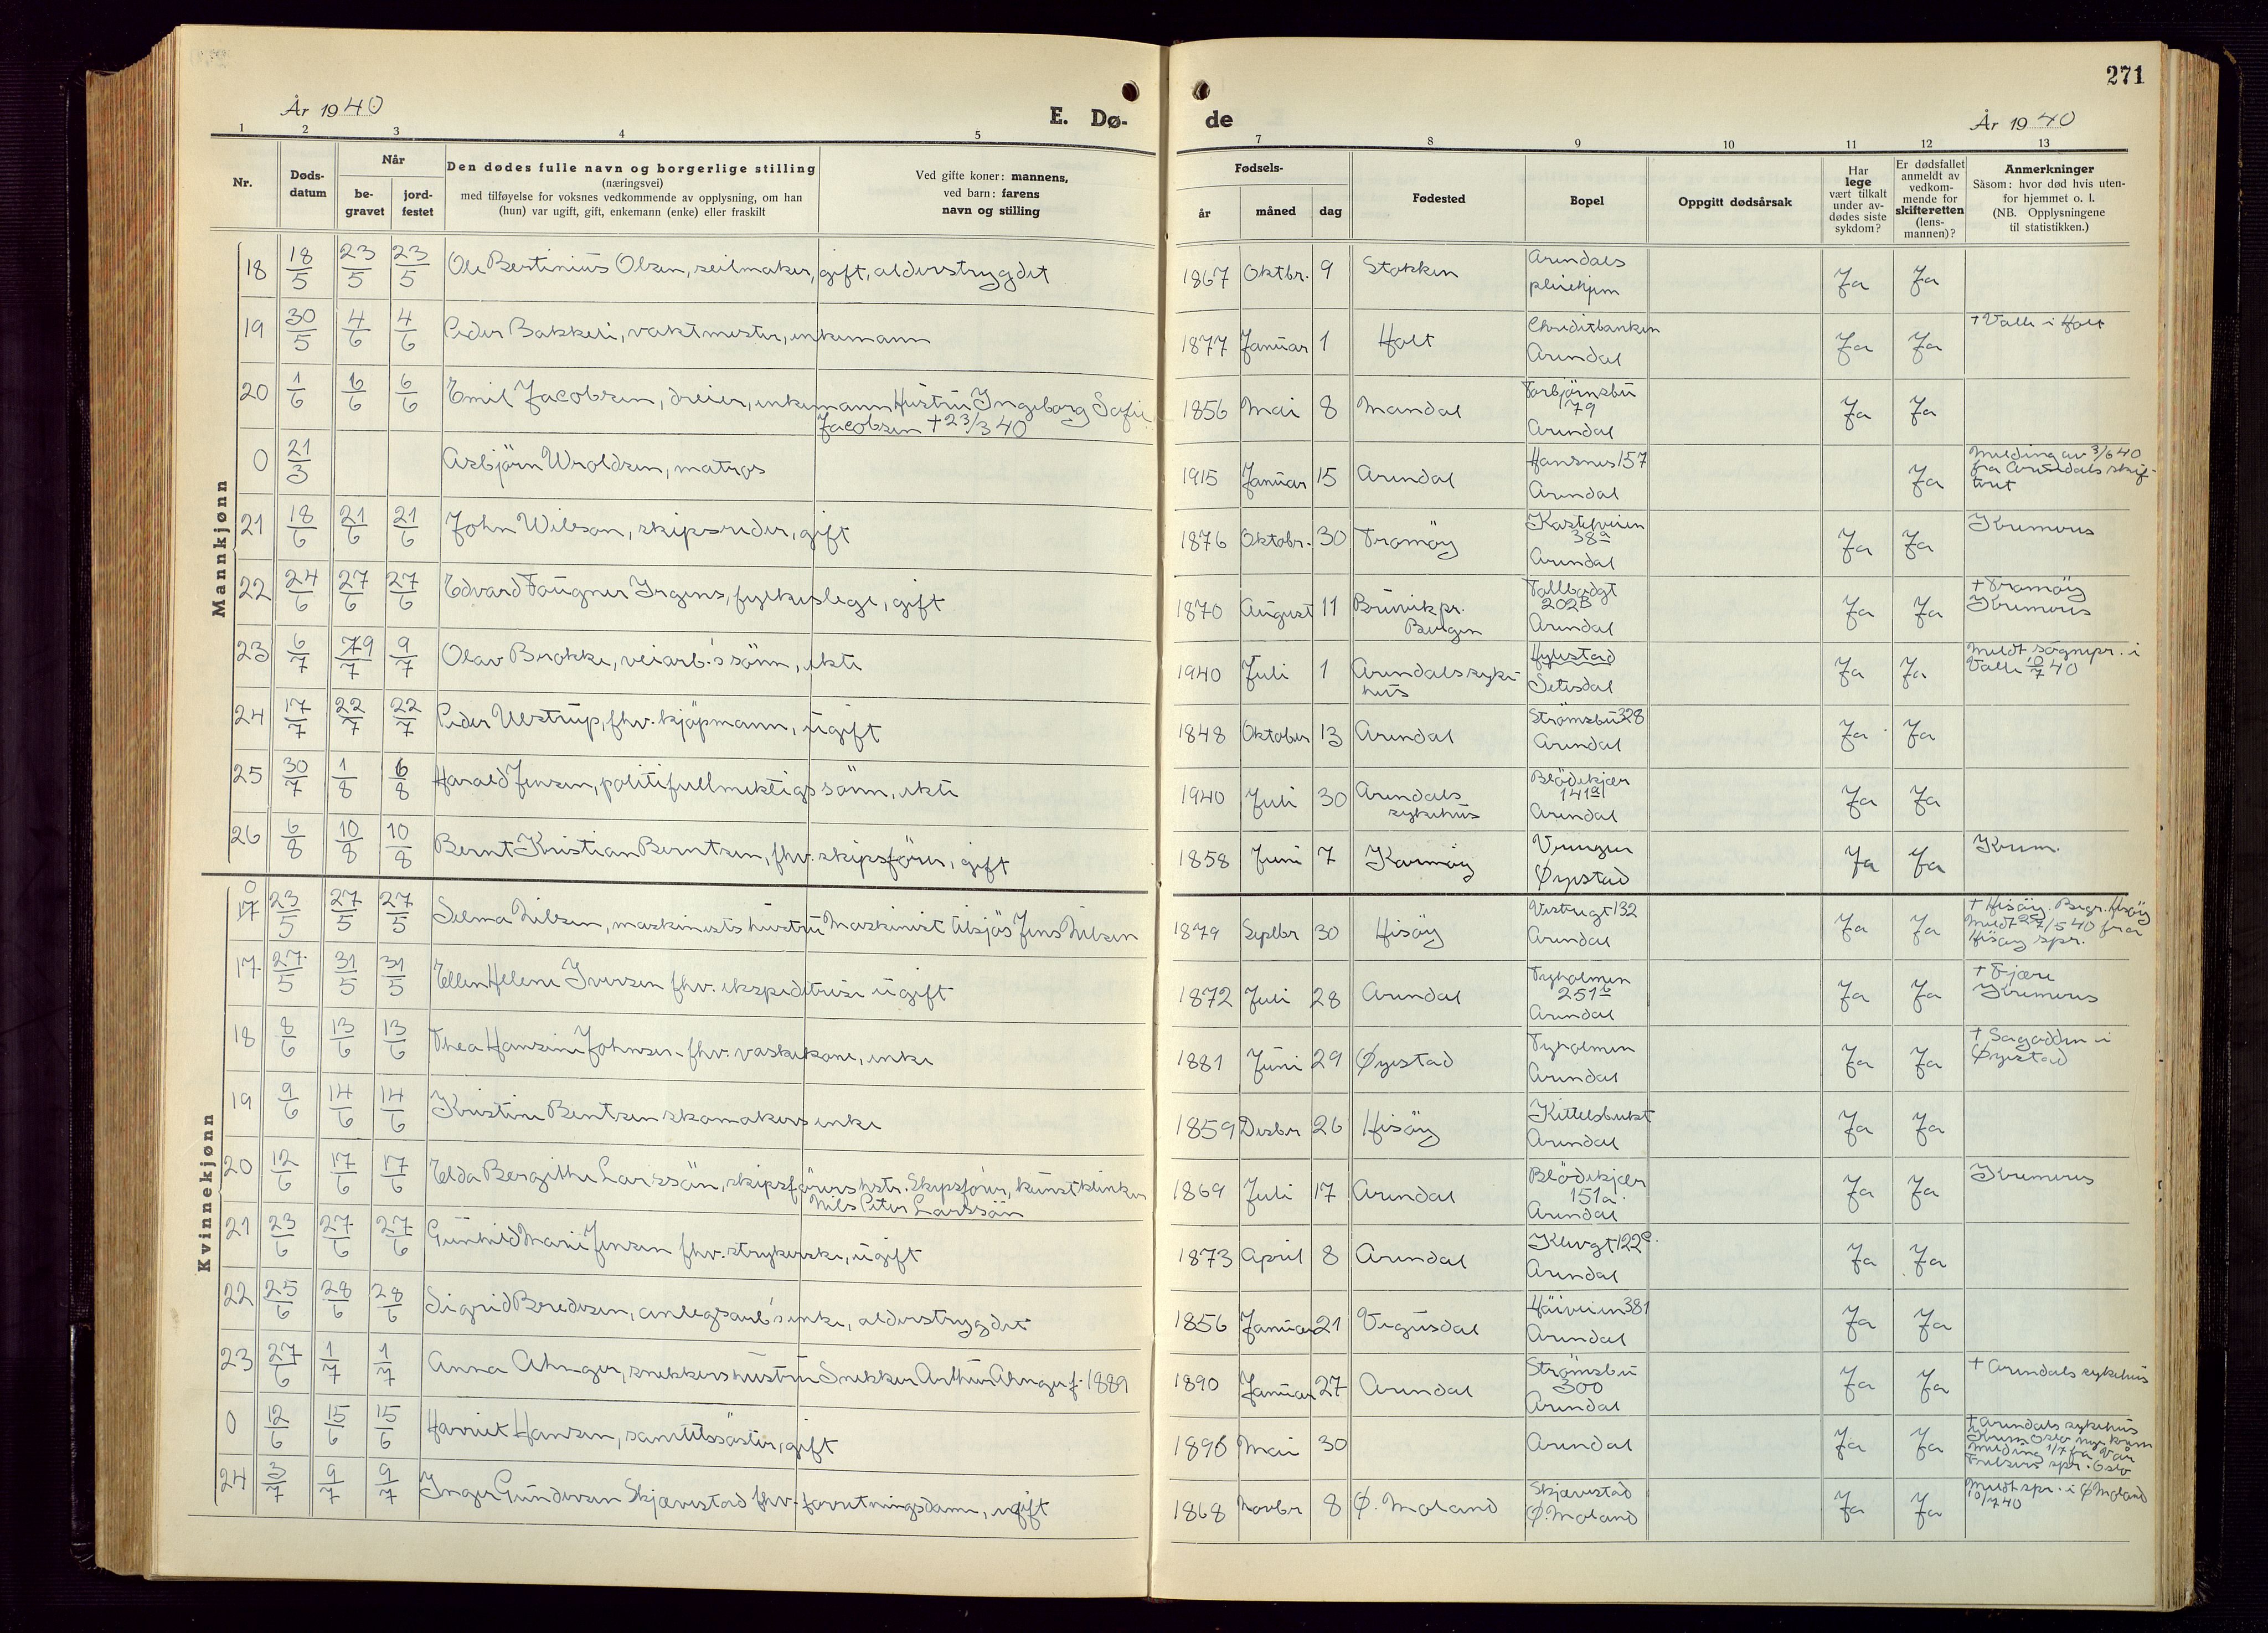 271
År 1940
E. Dø-
de
År 1940
1 2 3 4 5 7 8 9 10 11 12 13
Nr.
Døds-
datum
Når
be-
gravet
jord-
festet
Den dødes fulle navn og borgerlige stilling
(næringsvei)
med tilføyelse for voksnes vedkommende av opplysning, om han
(hun) var ugift, gift, enkemann (enke) eller fraskilt
Ved gifte koner: mannens,
ved barn: farens
navn og stilling
Fødsels-
år måned dag
Fødested
Bopel
Oppgitt dødsårsak
Har
lege
vært tilkalt
under av-
dødes siste
sykdom?
Er dødsfallet
anmeldt av
vedkom-
mende for
skifteretten
(lens-
mannen)?
Anmerkninger
Såsom: hvor død hvis uten-
for hjemmet o. l.
(NB. Opplysningene
til statistikken.)
Mannkjønn
18 18/5 23/5 23/5 Ole Bertinius Olsen, seilmaker, gift, alderstrygdet 1867 Oktbr. 9 Stokken Arendals
pleiehjem Ja Ja
19 30/5 4/6 4/6 Peder Bakkeli, vaktmester, enkemann 1877 Januar 1 Holt Creditbanken
Arendal Ja Ja † Valle i Holt
20 1/6 6/6 6/6 Emil Jacobsen, dreier, enkemann Hustru Ingeborg Sofie
Jacobsen † 23/3 40 1856 Mai 8 Mandal Torbjörnsbu
79
Arendal Ja Ja
0 21/3 Asbjörn Wroldsen, matros 1915 Januar 15 Arendal Hansnes 157
Arendal Ja Melding av 3/6 40
fra Arendals skif-
teret
21 18/6 21/6 21/6 John Wilson, skipsreder, gift 1876 Oktobr. 30 Tromöy Kastelveien
38a
Arendal Ja Ja Kremeres
22 24/6 27/6 27/6 Edvard Faugner Irgens, fylkeslege, gift 1870 August 11 Bruvik pr.
Bergen Tollbodgt
202B
Arendal Ja Ja † Tromöy
Kremeres
23 6/7 9/7 9/7 Olav Brokke, veiarb.'s sönn, ekte 1940 Juli 1 Arendals syke-
hus Hylestad
Setesdal Ja Ja Meldt sognepr. i
Valle 10/7 40
24 17/7 22/7 22/7 Peder Ulstrup, fhv. kjöpmann, ugift 1848 Oktober 13 Arendal Strömsbu 328
Arendal Ja Ja
25 30/7 1/8 6/8 Harald Jensen, politifullmektigs sönn, ekte 1940 Juli 30 Arendals
sykehus Blödekjær
141a
Arendal Ja Ja
26 6/8 10/8 10/8 Bernt Kristian Berntsen, fhv. skipsförer, gift 1858 Juni 7 Karmöy Vrengen
Øyestad Ja Ja Krem.
Kvinnekjønn
0
17 23/5 27/5 27/5 Selma Nilsen, maskinists hustru Maskinist tilsjös Jens Nilsen 1879 Septbr 30 Hisöy Vestregt 132
Arendal Ja Ja † Hisöy. Begr. Hisöy
Meldt 27/5 40 fra
Hisöy spr.
17 27/5 31/5 31/5 Ellen Helene Iversen fhv. ekspeditrise ugift 1872 Juli 28 Arendal Tyholmen
251b
Arendal Ja Ja † Fjære
Kremeres
18 8/6 13/6 13/6 Thea Hansine Johnsen fhv. vaskekone, enke 1881 Juni 29 Øyestad Tyholmen
Arendal Ja Ja † Sagodden i
Øyestad
19 9/6 14/6 14/6 Kristine Bentsen skomakers enke 1859 Desbr 26 Hisöy Kittelsbukt
Arendal Ja Ja
20 12/6 17/6 17/6 Elda Bergithe Larssön, skipsförers hstr. Skipsförer,
Nils Peter Larssön 1869 Juli 17 Arendal Blödekjær
151a
Arendal Ja Ja Kremeres
21 23/6 27/6 27/6 Gunhild Marie Jensen fhv. strykerske, ugift 1873 April 8 Arendal Klevgt 122c
Arendal Ja Ja
22 25/6 28/6 28/6 Sigrid Bredesen, anlegsarb's enke, alderstrygdet 1856 Januar 21 Vegusdal Höiveien 381
Arendal Ja Ja
23 27/6 1/7 1/7 Anna Ahnger, snekkers hustru Snekker Arthur Ahnger f. 1889 1890 Januar 27 Arendal Strömsbu
300
Arendal Ja Ja † Arendals sykehus
0 12/6 15/6 15/6 Harriet Hansen, sanitetssöster, gift 1896 Mai 30 Arendal Ja Ja † Arendals sykehus
Krem Oslo nye krem
Melding 1/7 fra Vår
Frelsers spr. Oslo
24 3/7 9/7 9/7 Inger Gundersen Skjævestad fhv. forretningsdame, ugift 1868 Novbr 8 Ø. Moland Skjævestad
Ø. Moland Ja Ja Meldt spr. i Ø Moland
10/7 40